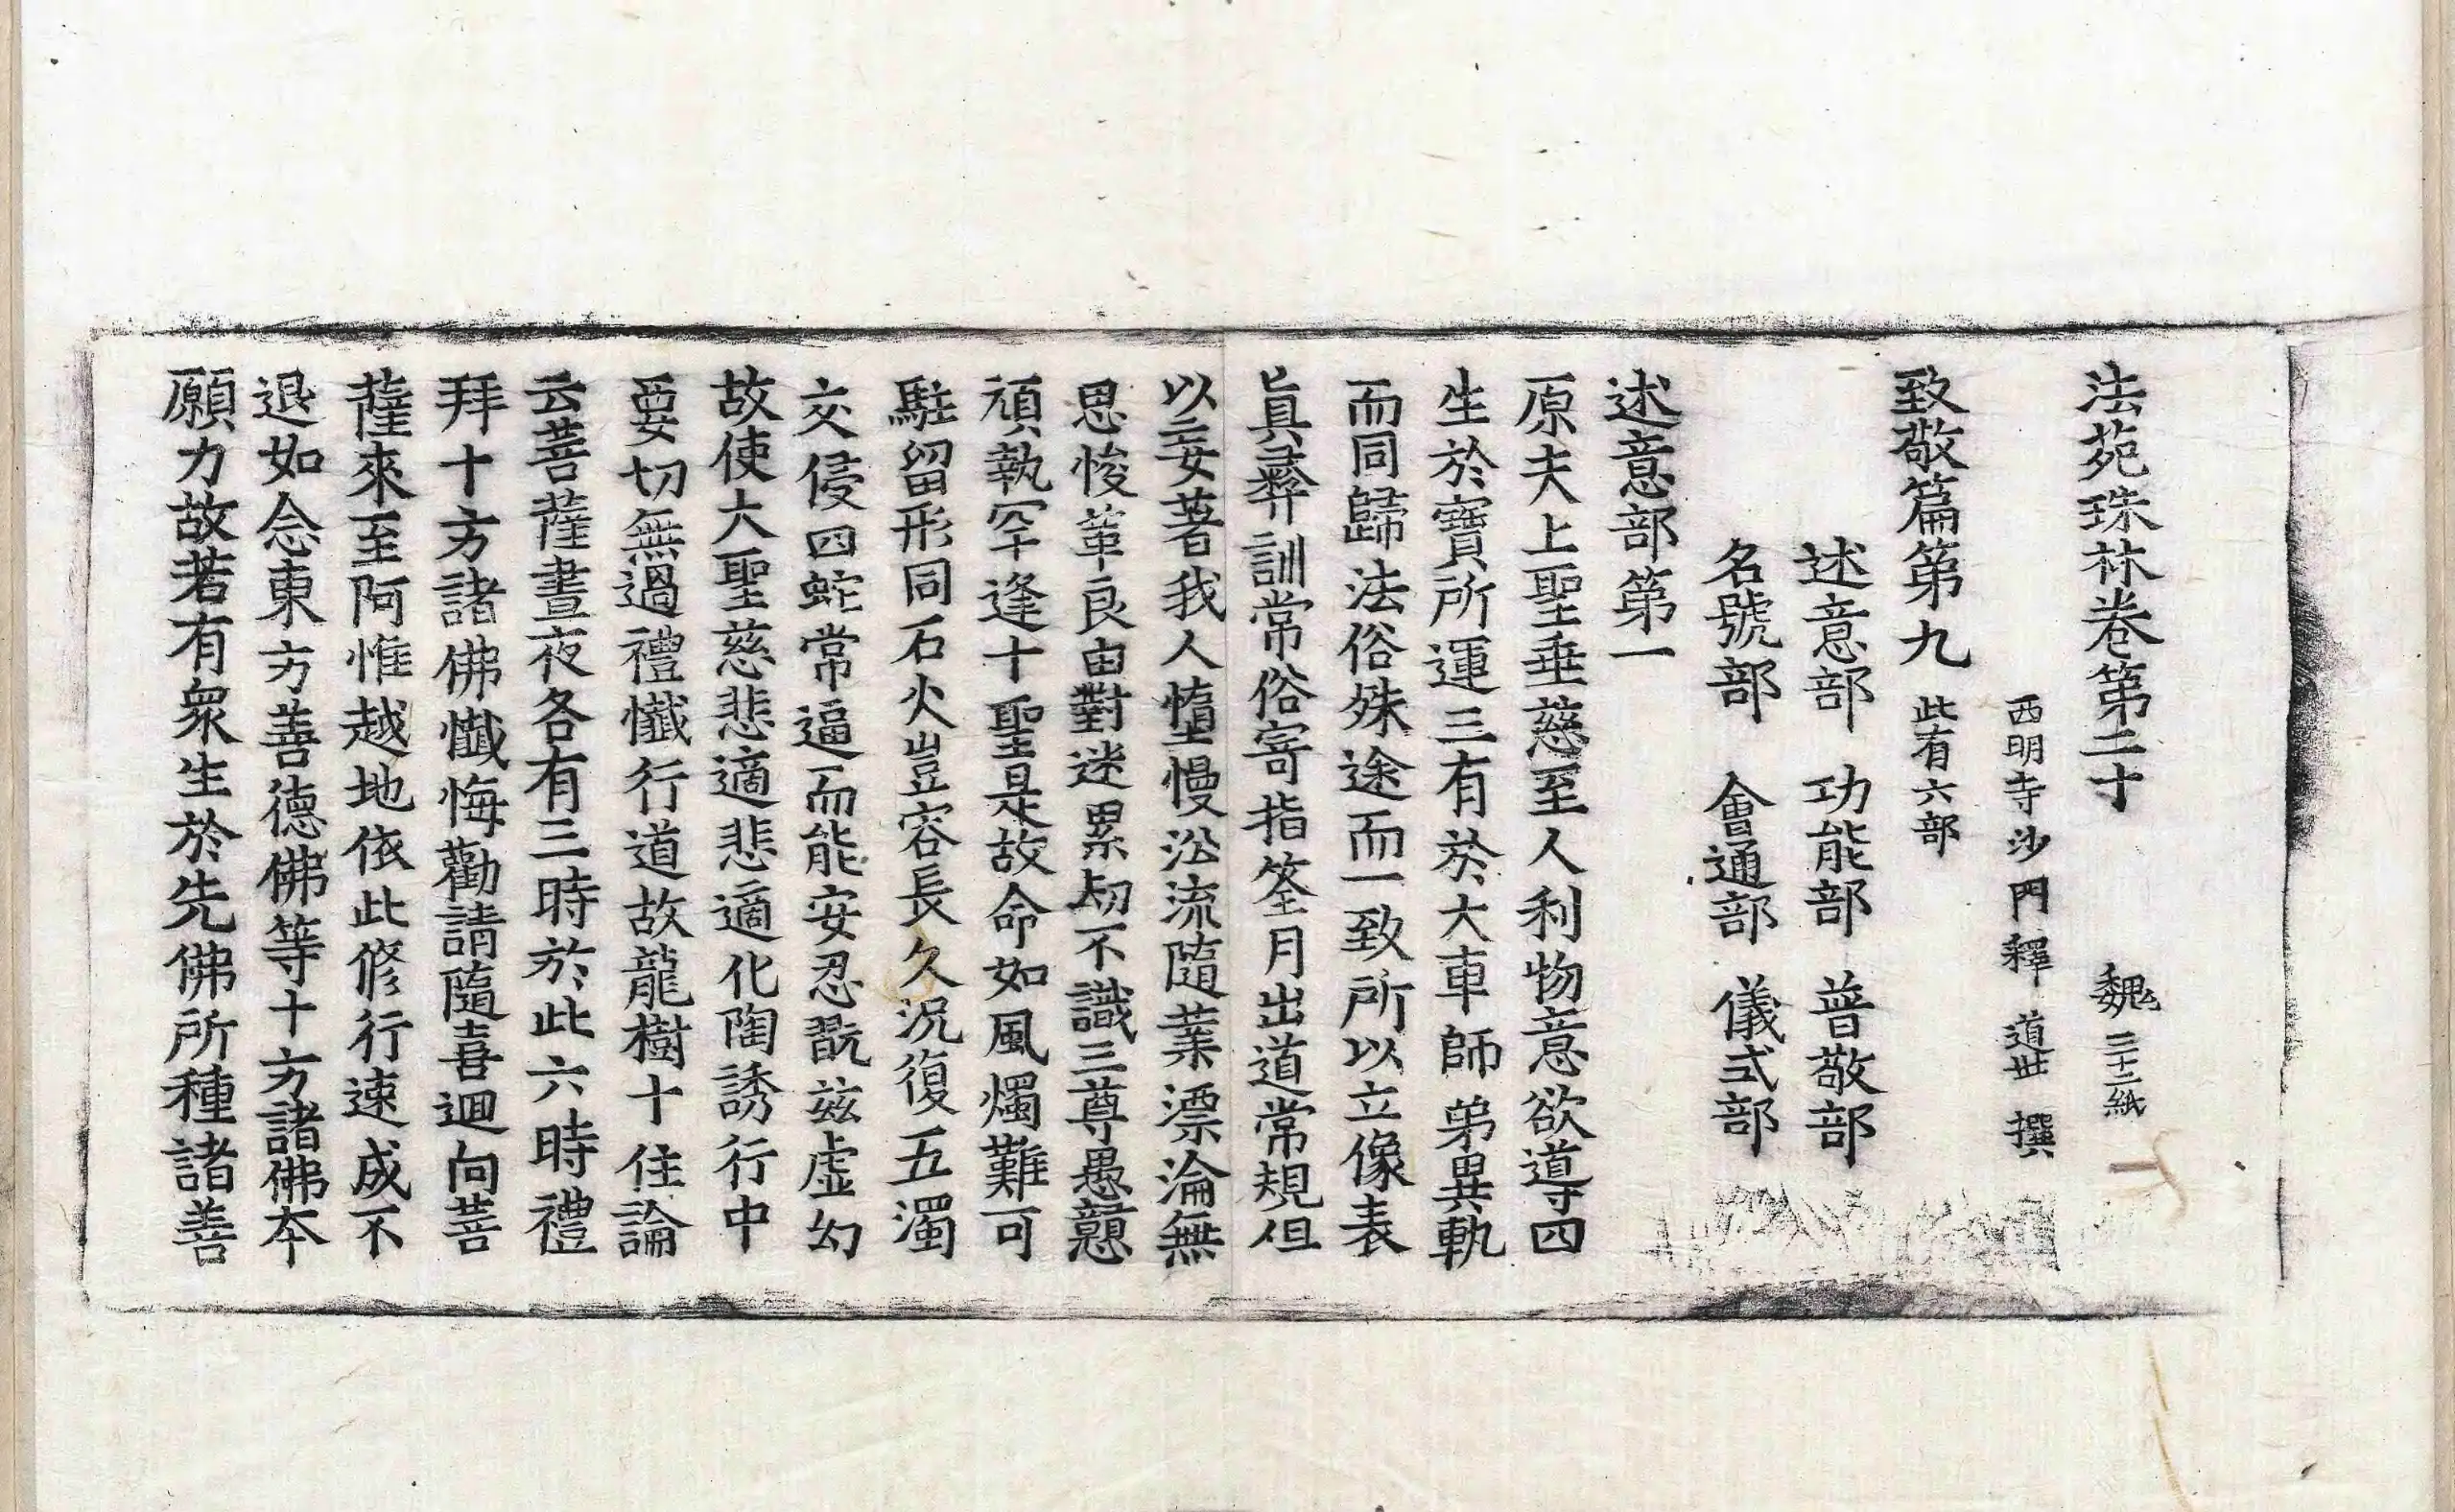 法苑珠林卷第二十　魏　二十二紙
西明寺沙門釋　道世　撰
致敬篇第九　此有六部
述意部　功能部　普敬部
名號部　會通部　儀式部
述意部第一
原夫上聖垂慈至人利物意欲導四
生於寶所運三有於大車師弟異軌
而同歸法俗殊途而一致所以立像表
眞彝訓常俗寄指筌月出道常規但
以妄著我人墮慢㳂流隨業漂淪無
思悛革良由對迷累刧不識三尊愚戇
頑執罕逢十聖是故命如風燭難可
駐留形同石火豈容長久況復五濁
交侵四蛇常逼而能安忍翫茲虛幻
故使大聖慈悲適悲適化陶誘行中
要切無過禮懺行道故龍樹十住論
云菩薩晝夜各有三時於此六時禮
拜十方諸佛懺悔勸請隨喜迴向菩
薩來至阿惟越地依此修行速成不
退如念東方善德佛等十方諸佛本
願力故若有衆生於先佛所種諸善